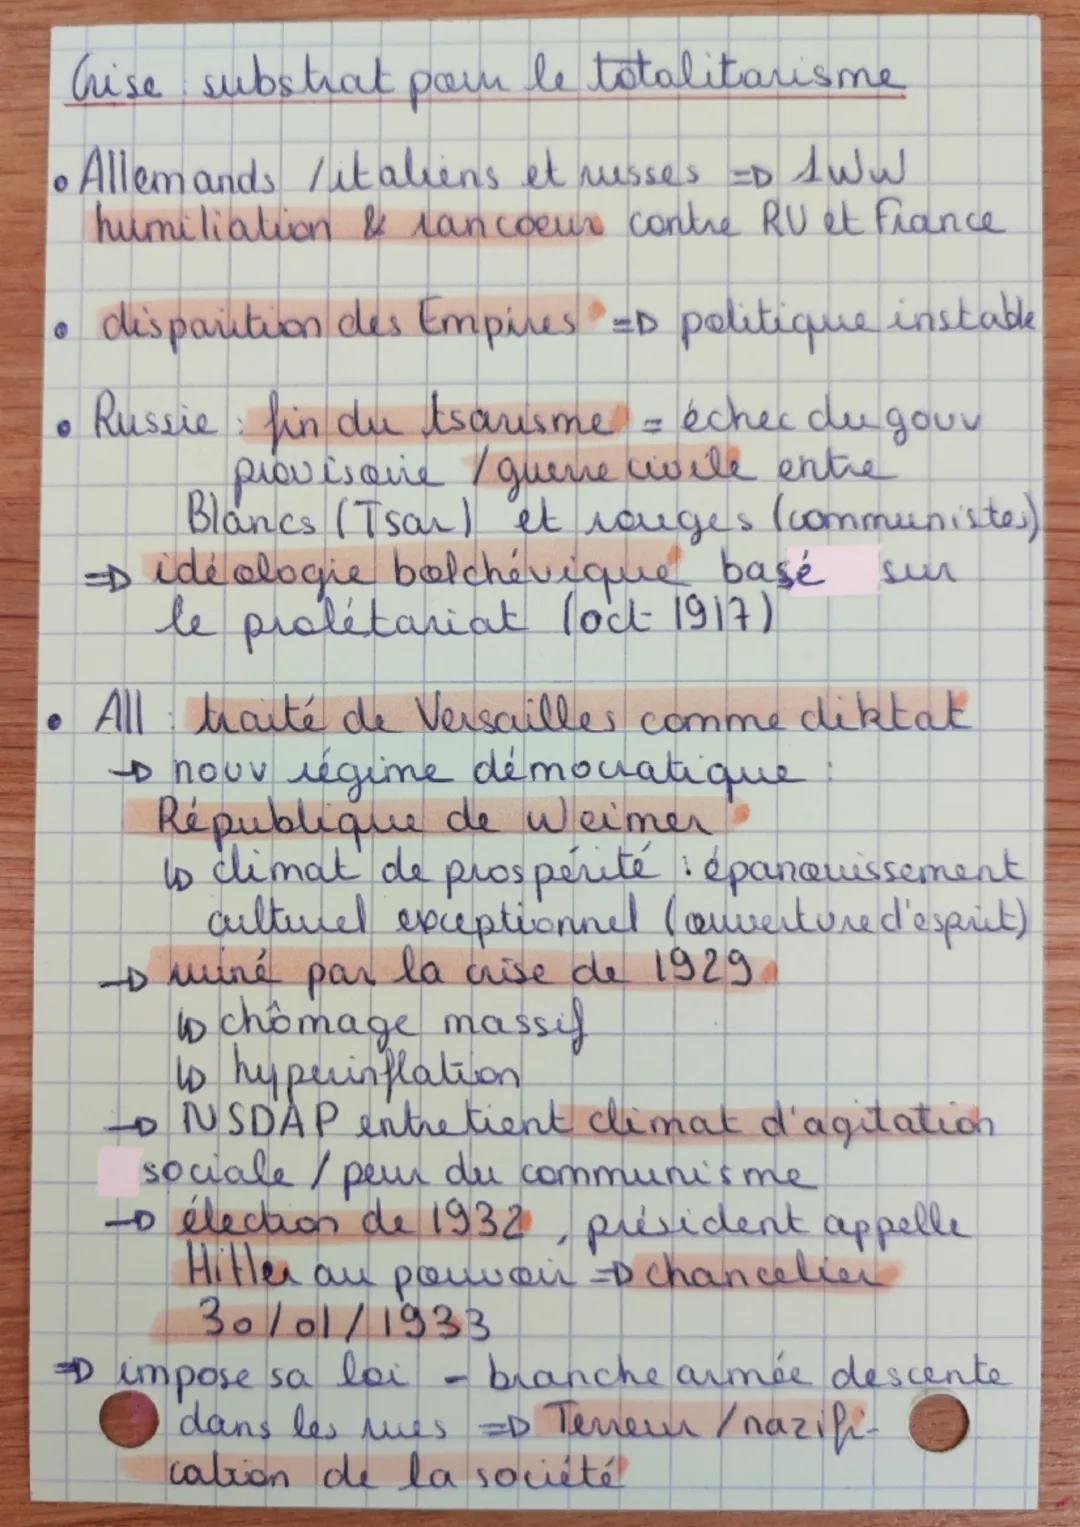 Crise : substrat pour le totalitarisme
• Allemands / italiens et russes => 1WW
humiliation & rancoeur contre RU et France
• disparition des Empires => politique instable
• Russie : fin du tsarisme = échec du gouv
provisoire / guerre civile entre
Blancs (Tsar) et rouges (communistes)
=> idéologie bolchévique basé sur
le prolétariat (oct 1917)
• All : traité de Versailles comme diktat
-> nouv régime démocratique :
République de Weimer
↳ climat de prospérité : épanouissement
culturel exceptionnel (ouverture d'esprit)
-> miné par la crise de 1929
↳ chômage massif
↳ hyperinflation
-> NSDAP entretient climat d'agitation
sociale / peur du communisme
-> élection de 1932, président appelle
Hitler au pouvoir => chancelier
30/01/1933
=> impose sa loi - branche armée descente
dans les rues => Terreur / nazifi-
cation de la société